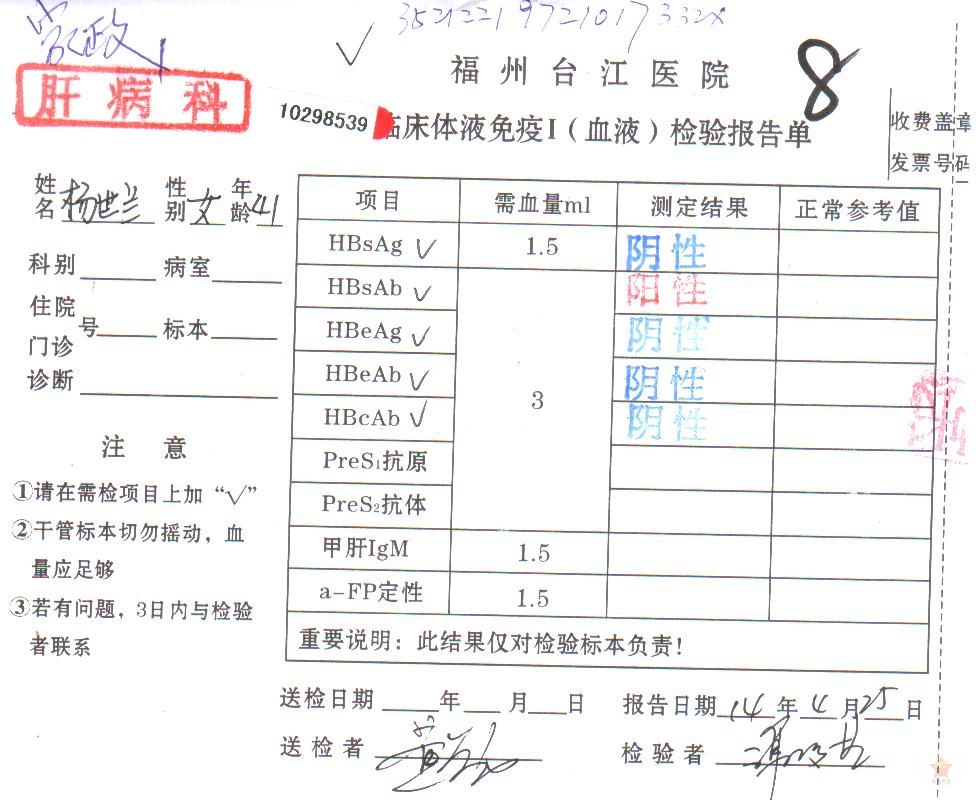 家政
35212219721017332X
福州台江医院
8
肝病科
10298539
临床体液免疫I（血液）检验报告单
收费盖章
发票号码
姓名 杨世兰 性别 女 年龄 41
科别 病室
住院
门诊
号 标本
诊断
注 意
①请在需检项目上加“√”
②干管标本切勿摇动，血
量应足够
③若有问题，3日内与检验
者联系
项目 需血量ml 测定结果 正常参考值
HBsAg √ 1.5 阴性
HBsAb √ 阳性
HBeAg √ 阴性
HBeAb √ 3 阴性
HBcAb √ 阴性
PreS₁抗原
PreS₂抗体
甲肝IgM 1.5
a-FP定性 1.5
重要说明：此结果仅对检验标本负责！
送检日期 年 月 日 报告日期 14 年 4 月 25 日
送检者 检验者